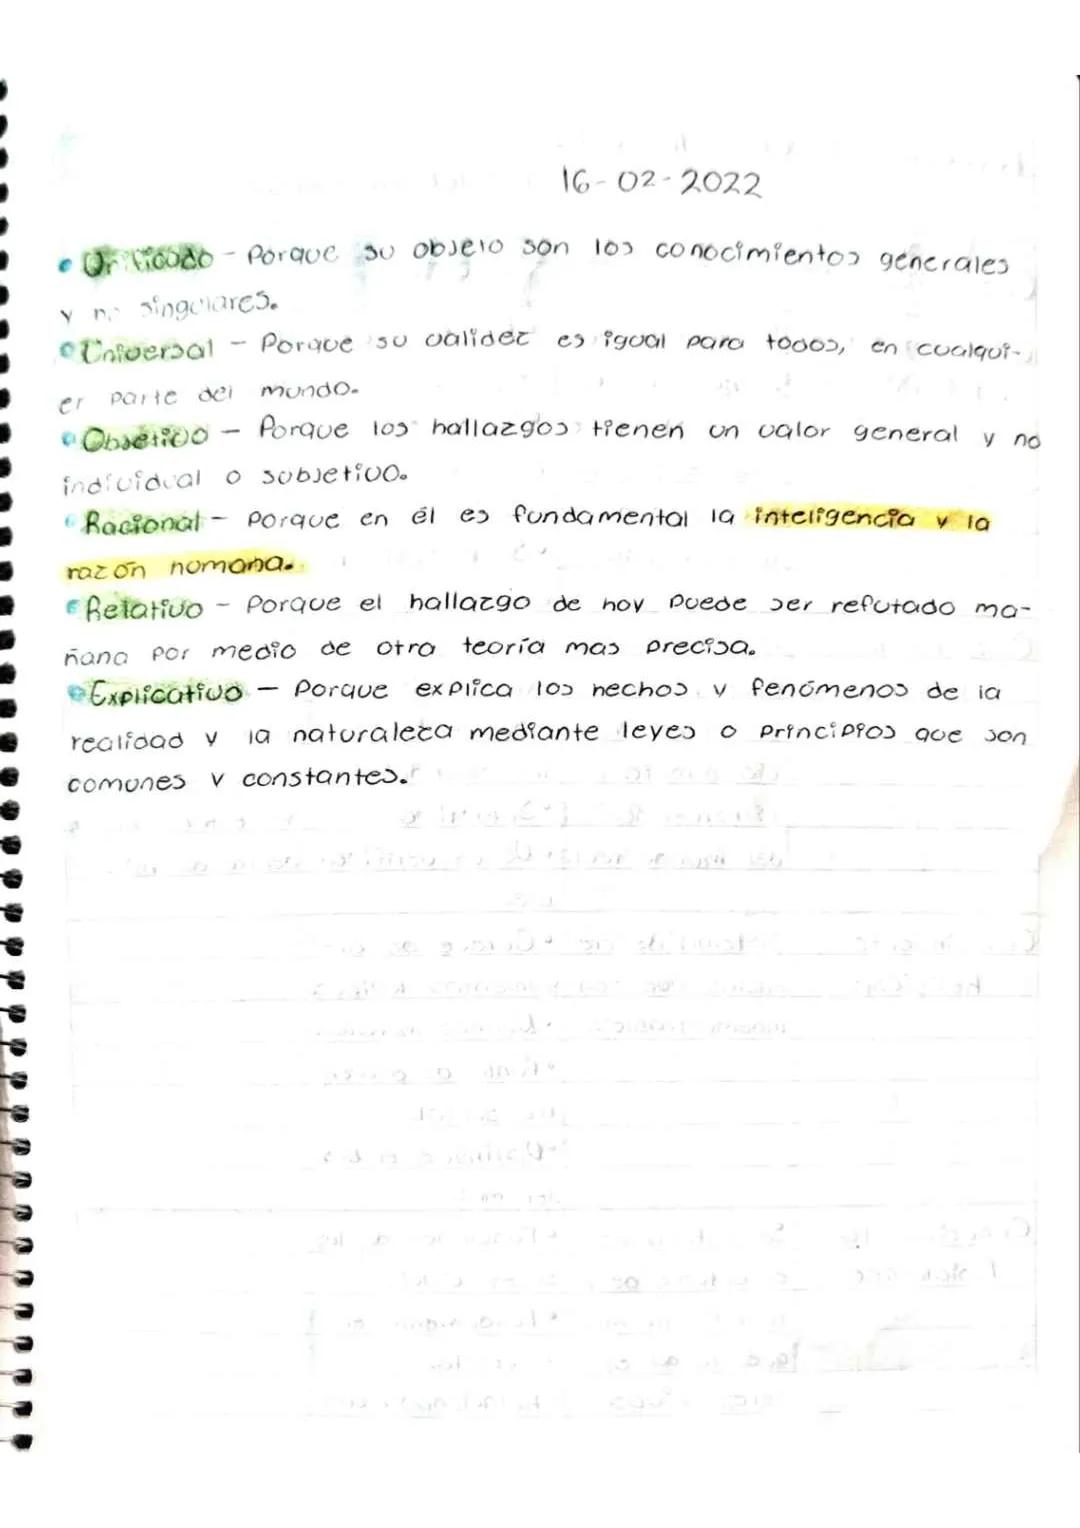 16-02-2022
• Unificado - Porque su objeto son los conocimientos generales
y no singulares.
• Universal - Porque su validez es igual para todos, en cualqui-
er parte del mundo.
• Objetivo - Porque los hallazgos tienen un valor general y no
individual o subjetivo.
• Racional - Porque en él es fundamental la inteligencia y la
razón humana.
• Relativo - Porque el hallazgo de hoy puede ser refutado ma-
ñana por medio de otra teoría mas precisa.
• Explicativo - Porque explica los hechos y fenómenos de la
realidad y la naturaleza mediante leyes o principios que son
comunes y constantes.